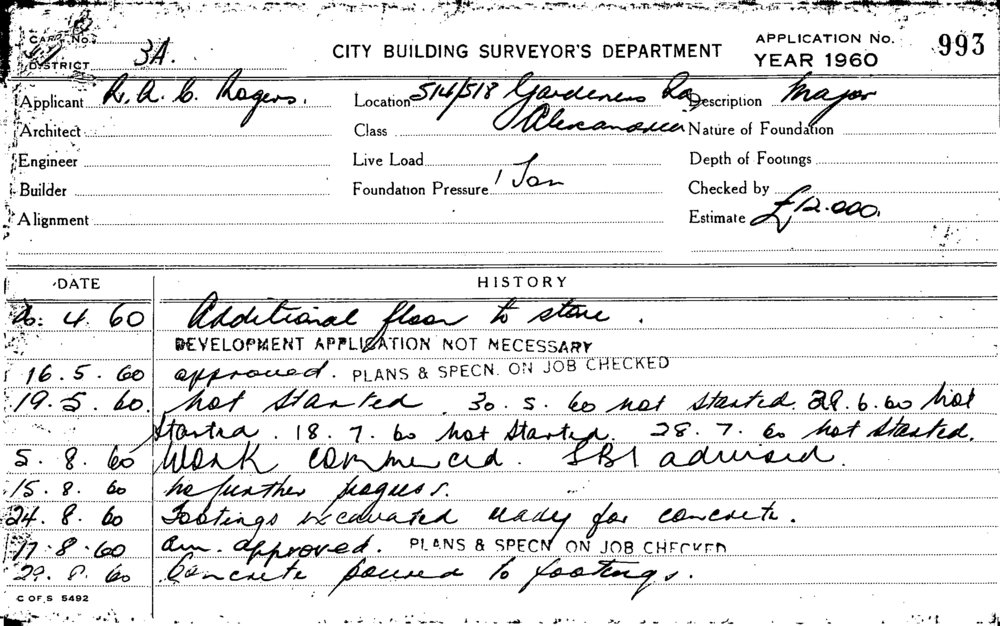 CARD No.
DISTRICT 3A.
CITY BUILDING SURVEYOR'S DEPARTMENT
APPLICATION No. 993
YEAR 1960
Applicant R. A. C. Rogers. Location 514/518 Gardeners Rd Description Major
Architect Class Alexandria Nature of Foundation
Engineer Live Load Depth of Footings
Builder Foundation Pressure 1 Ton Checked by
Alignment Estimate £12.000.
DATE HISTORY
26. 4. 60 Additional floor to store.
DEVELOPMENT APPLICATION NOT NECESSARY
16. 5. 60 approved. PLANS & SPECN. ON JOB CHECKED
19. 5. 60. not started. 30. 5. 60 not started. 29. 6. 60 not
started. 18. 7. 60 not started. 28. 7. 60 not started.
5. 8. 60 Work commenced. SBI advised.
15. 8. 60 no further progress.
24. 8. 60 Footings excavated ready for concrete.
17. 8. 60 am. approved. PLANS & SPECN ON JOB CHECKED
29. 8. 60 Concrete poured to footings.
C OF S 5492